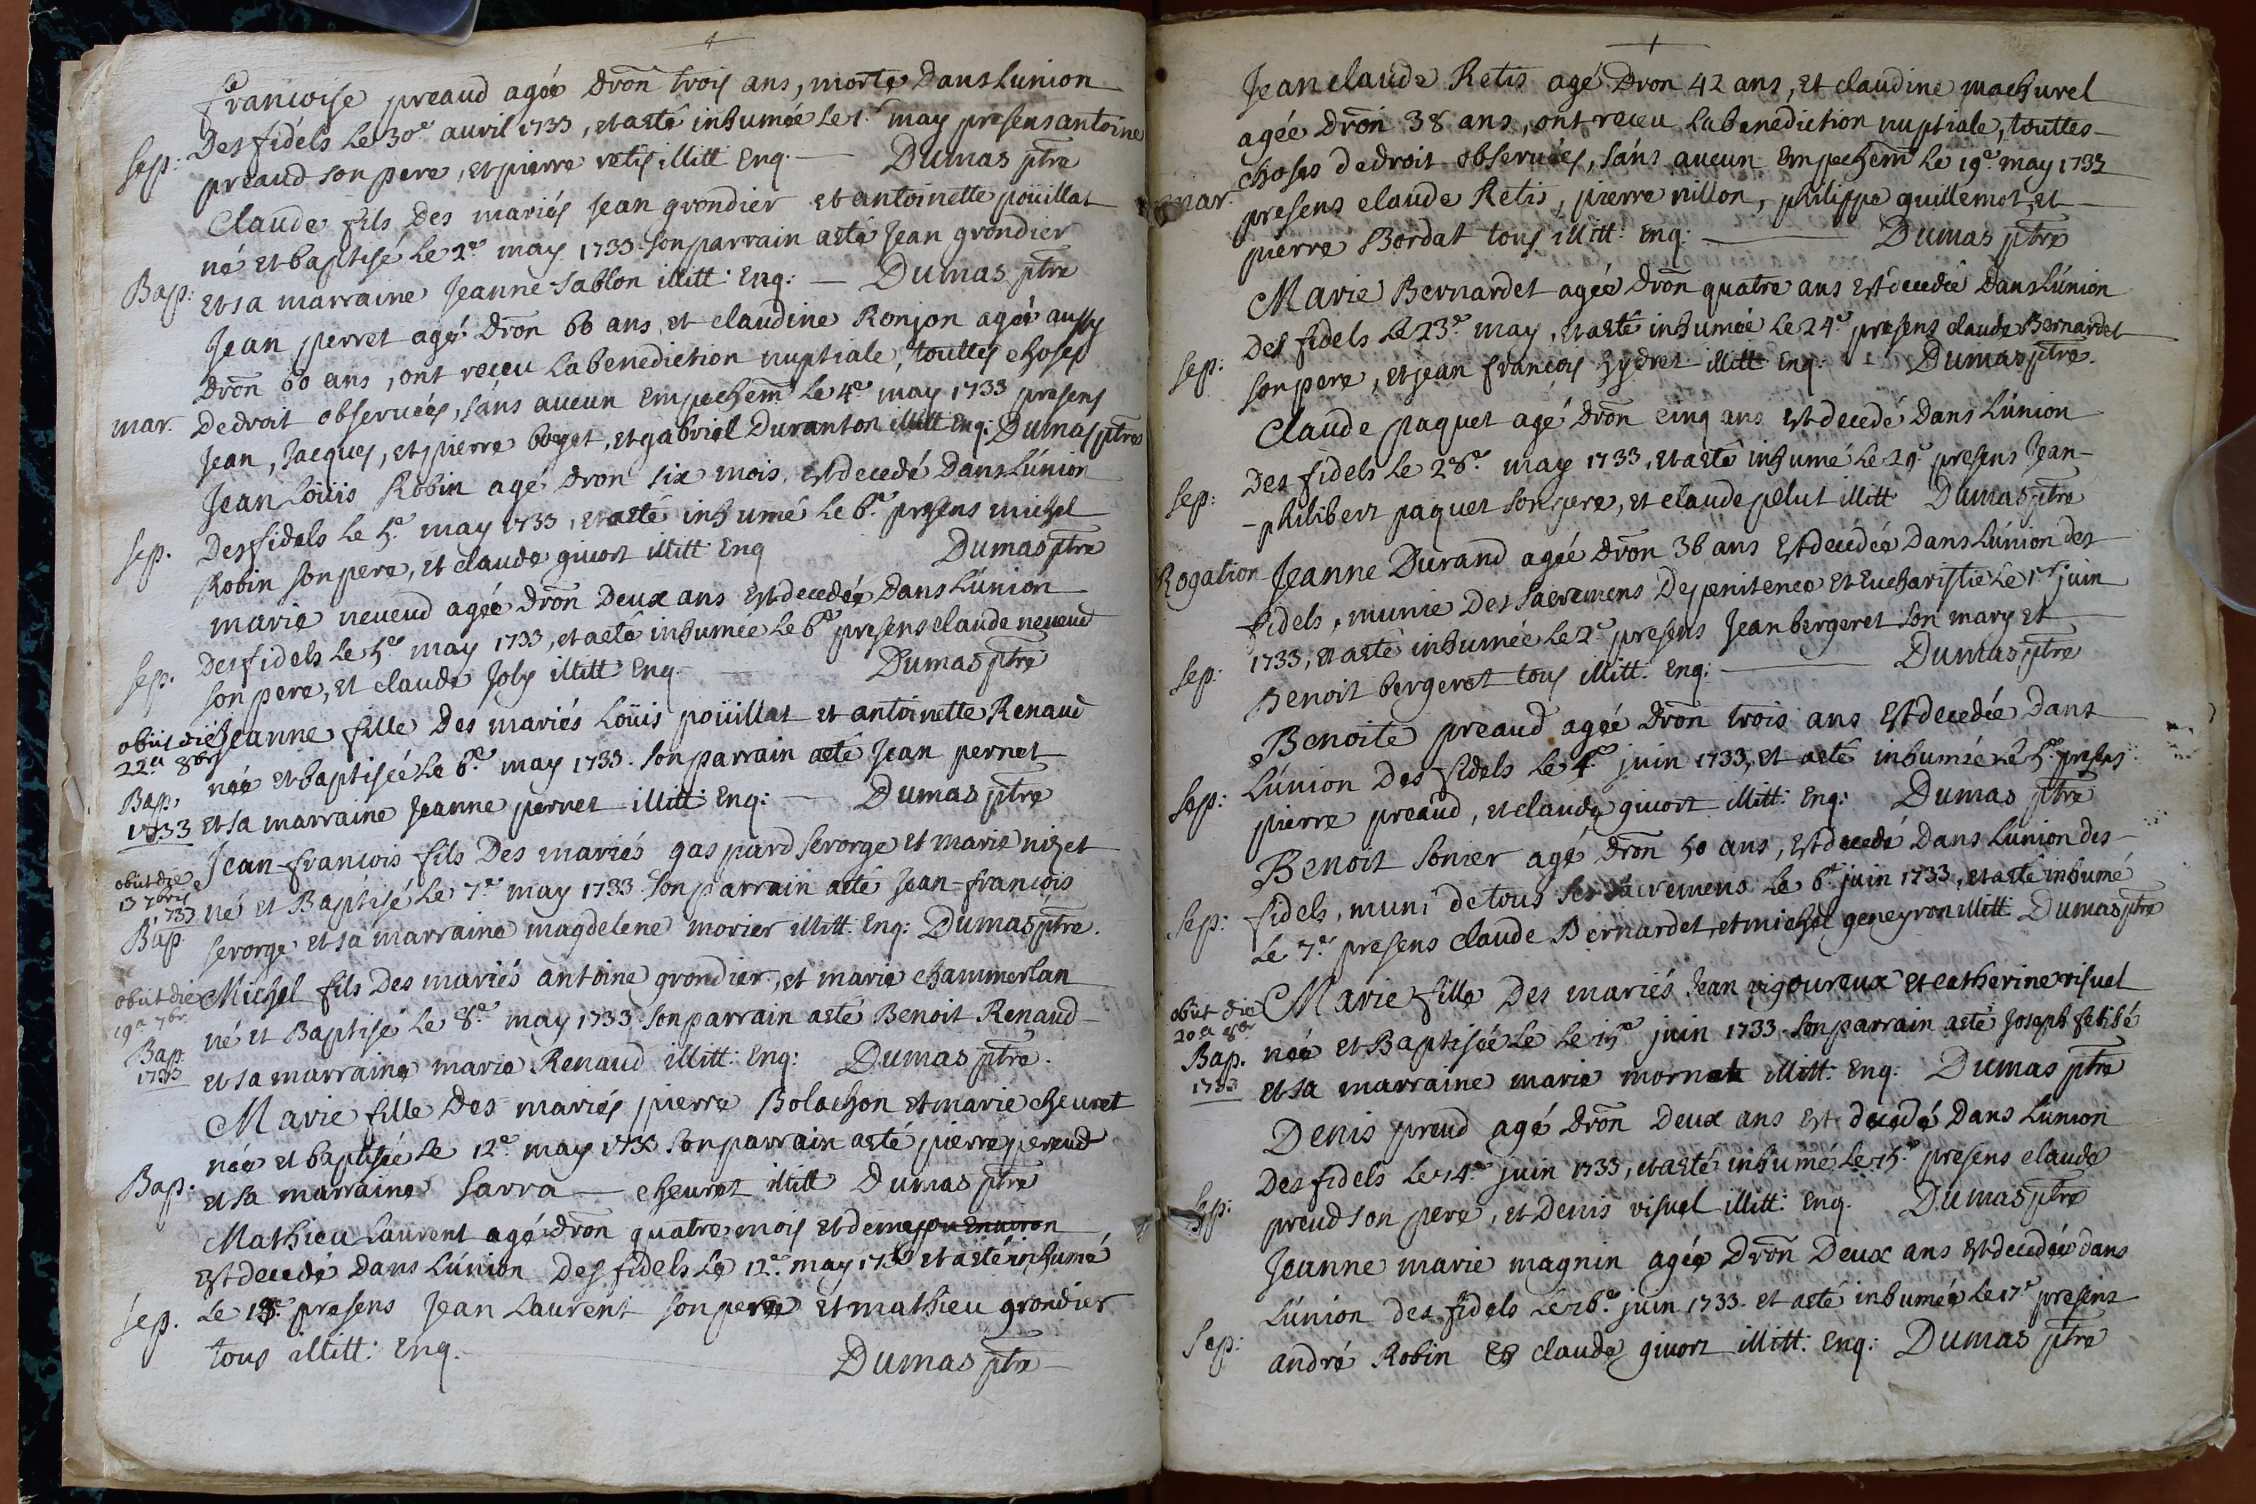 Françoise preaud agée dron trois ans, morte dans Lunion
Sep: Des fidéls Le 30e avril 1733, et a eté inhumée Le 1r may presens antoine
preaud son pere, et pierre retis illitt Enq. — Dumas ptre
Claude fils Des mariés Jean grondier et antoinette poüillat
né et baptisé Le 2e may 1733. son parrain a eté Jean grondier
Bap: et sa marraine Jeanne Sablon illitt: Enq: — Dumas ptre
Jean perret agé dron 60 ans, et claudine Ronjon agée aussy
dron 60 ans, ont receu La benediction nuptiale, touttes choses
mar. De droit observées, sans aucun Empechem Le 4e may 1733 presens
Jean, Jacques, et pierre boyet, et gabriel Duranton illitt Enq: Dumas ptre
Jean Loüis Robin agé dron six mois, est decedé Dans Lúnion
sep. Des fidels Le 5e may 1733, et a eté inhumé Le 6e presens michel
Robin son pere, et claude givort illitt: Enq Dumas ptre
marie neveud agée dron Deux ans est decedée Dans Lúnion
sep. Des fidels Le 5e may 1733, et a eté inhumée Le 6e presens claude neveud
son pere, et claude Joly illitt Enq. Dumas ptre
obiit die Jeanne fille Des mariés Loüis poüillat et antoinette Renaud
22a 8bris
Bap, née et baptisée Le 6e may 1733. son parrain a eté Jean pernet
1733 et sa marraine Jeanne pernet illitt: Enq: — Dumas ptre
Jean-francois fils Des mariés gaspard serorge et marie nizet
obiit die
13 7bris
1733 né et Baptisé Le 7e may 1733. son parrain a eté Jean-francois
Bap serorge et sa marraine magdelene morier illitt: Enq: Dumas ptre.
obiit die Michel fils Des mariés antoine grondier, et marie chammerlan
19a 7br né et Baptisé Le 8e may 1733. son parrain a eté Benoit Renaud
Bap
1733 et sa marraine marie Renaud illitt: Enq: Dumas ptre.
Marie fille Des mariés pierre Bolachon et marie chevret
née et baptisée Le 12e may 1733 son parrain a eté pierre
Bap. et sa marraine Sarra — chevret illitt Dumas ptre
Mathieu Laurent agé dron quatre mois et demy ou Environ
est decedé Dans Lúnion Des fidels Le 12e may 1733 et a eté inhumé
sep. Le 13e presens Jean Laurent son pere et mathieu grondier
tous illitt: Enq. Dumas ptre
Jean claude Retis agé Dron 42 ans, et claudine machurel
agée dron 38 ans, ont receu La benediction nuptiale, touttes
choses de droit observées, sans aucun Empechem Le 19e may 1733
mar. presens claude Retis, pierre nillon, philippe guillemot, et
pierre Bordat tous illitt: Enq: — Dumas ptre
Marie Bernardet agée dron quatre ans est decedée Dans Lúnion
sep: Des fidels Le 23e may, et a eté inhumée Le 24e presens claude Bernardet
son pere, et jean françois hydret illitt Enq: - Dumas ptre.
Claude paquet agé dron cinq ans est decedé Dans Lúnion
sep: Des fidels Le 28e may 1733, et a eté inhumé Le 29e presens Jean-
-philibert paquet son pere, et claude pelut illitt Dumas ptre
Rogation Jeanne Durand agée dron 36 ans est decedée Dans Lúnion des
fidels, munie Des sacremens De penitence et Eucharistie Le 1r juin
sep: 1733, et a eté inhumée Le 2e presens Jean bergeret son mary et
Benoit bergeret tous illitt: Enq: — Dumas ptre
Benoite preaud agée dron trois ans est decedée Dans
Sep: Lúnion Des fidels Le 4e juin 1733, et a eté inhumée Le 5e presens
pierre preaud, et claude givort illitt: Enq: Dumas ptre
Benoit Sonier agé dron 50 ans, est decedé Dans Lunion des
sep: fidels, muni de tous ses sacremens Le 6e juin 1733, et a eté inhumé
Le 7e presens claude Bernardet, et michel geneyron illitt Dumas ptre
obiit die Marie fille Des mariés Jean vigoureux et catherine visuel
20a 8br
Bap. née et Baptisée Le Le 15e juin 1733. son parrain a eté Joseph felisé
1733 et sa marraine marie illitt: Enq: Dumas ptre
Denis preud agé dron Deux ans est decedé Dans Lunion
Sep: Des fidels Le 14e juin 1733, et a eté inhumé Le 15e presens claude
preud son pere, et Denis visuel illitt: Enq. Dumas ptre
Jeanne marie magnin agée Dron Deux ans est decedée dans
Lúnion des fidels Le 16e juin 1733. et a eté inhumée Le 17e presens
Sep: andré Robin et claude givort illitt: Enq: Dumas ptre